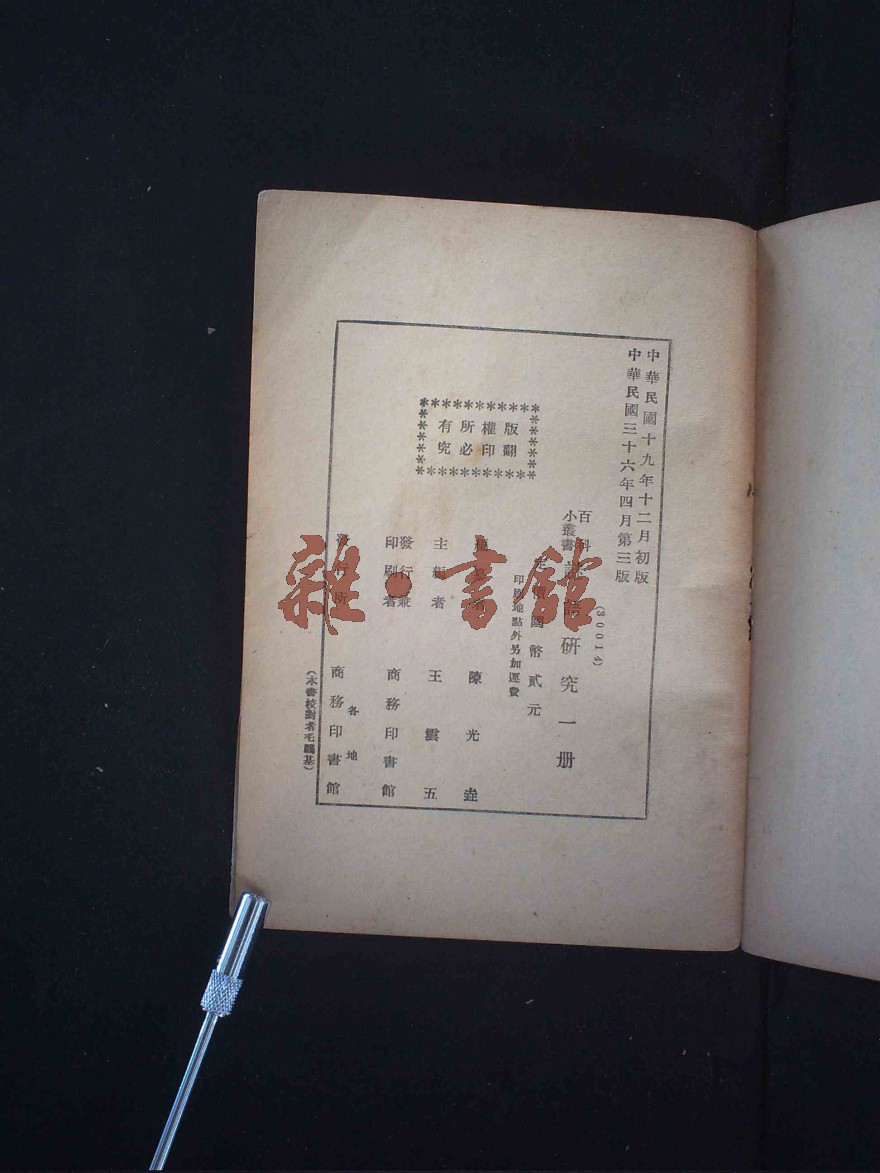 中華民國十九年十二月初版
中華民國三十六年四月第三版
(30014)
百科
小叢書
謎語研究一册
定價國幣貳元
印刷地點外另加運費
版權所有
翻印必究
陳光垚
主編者 王雲五
發行兼
印刷者 商務印書館
發行所 各地
商務印書館
(本書校對者毛鷗基)
雜·書館